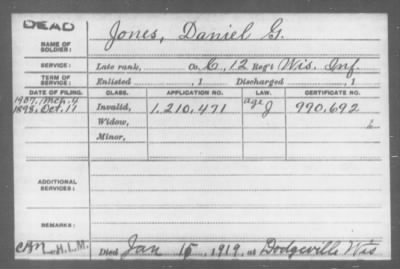 DEAD
Jones, Daniel G.
NAME OF SOLDIER:
SERVICE: Late rank, Co. C, 12 Reg't Wis. Inf.
TERM OF SERVICE: Enlisted , 1 Discharged , 1
DATE OF FILING. CLASS. APPLICATION NO. LAW. CERTIFICATE NO.
1907, Mch. 4 age
1898, Oct. 11 Invalid, 1.210,471 J 990,692
Widow,
Minor,
ADDITIONAL SERVICES:
REMARKS:
H.L.M. Died Jan 15, 1919, at Dodgeville Wis